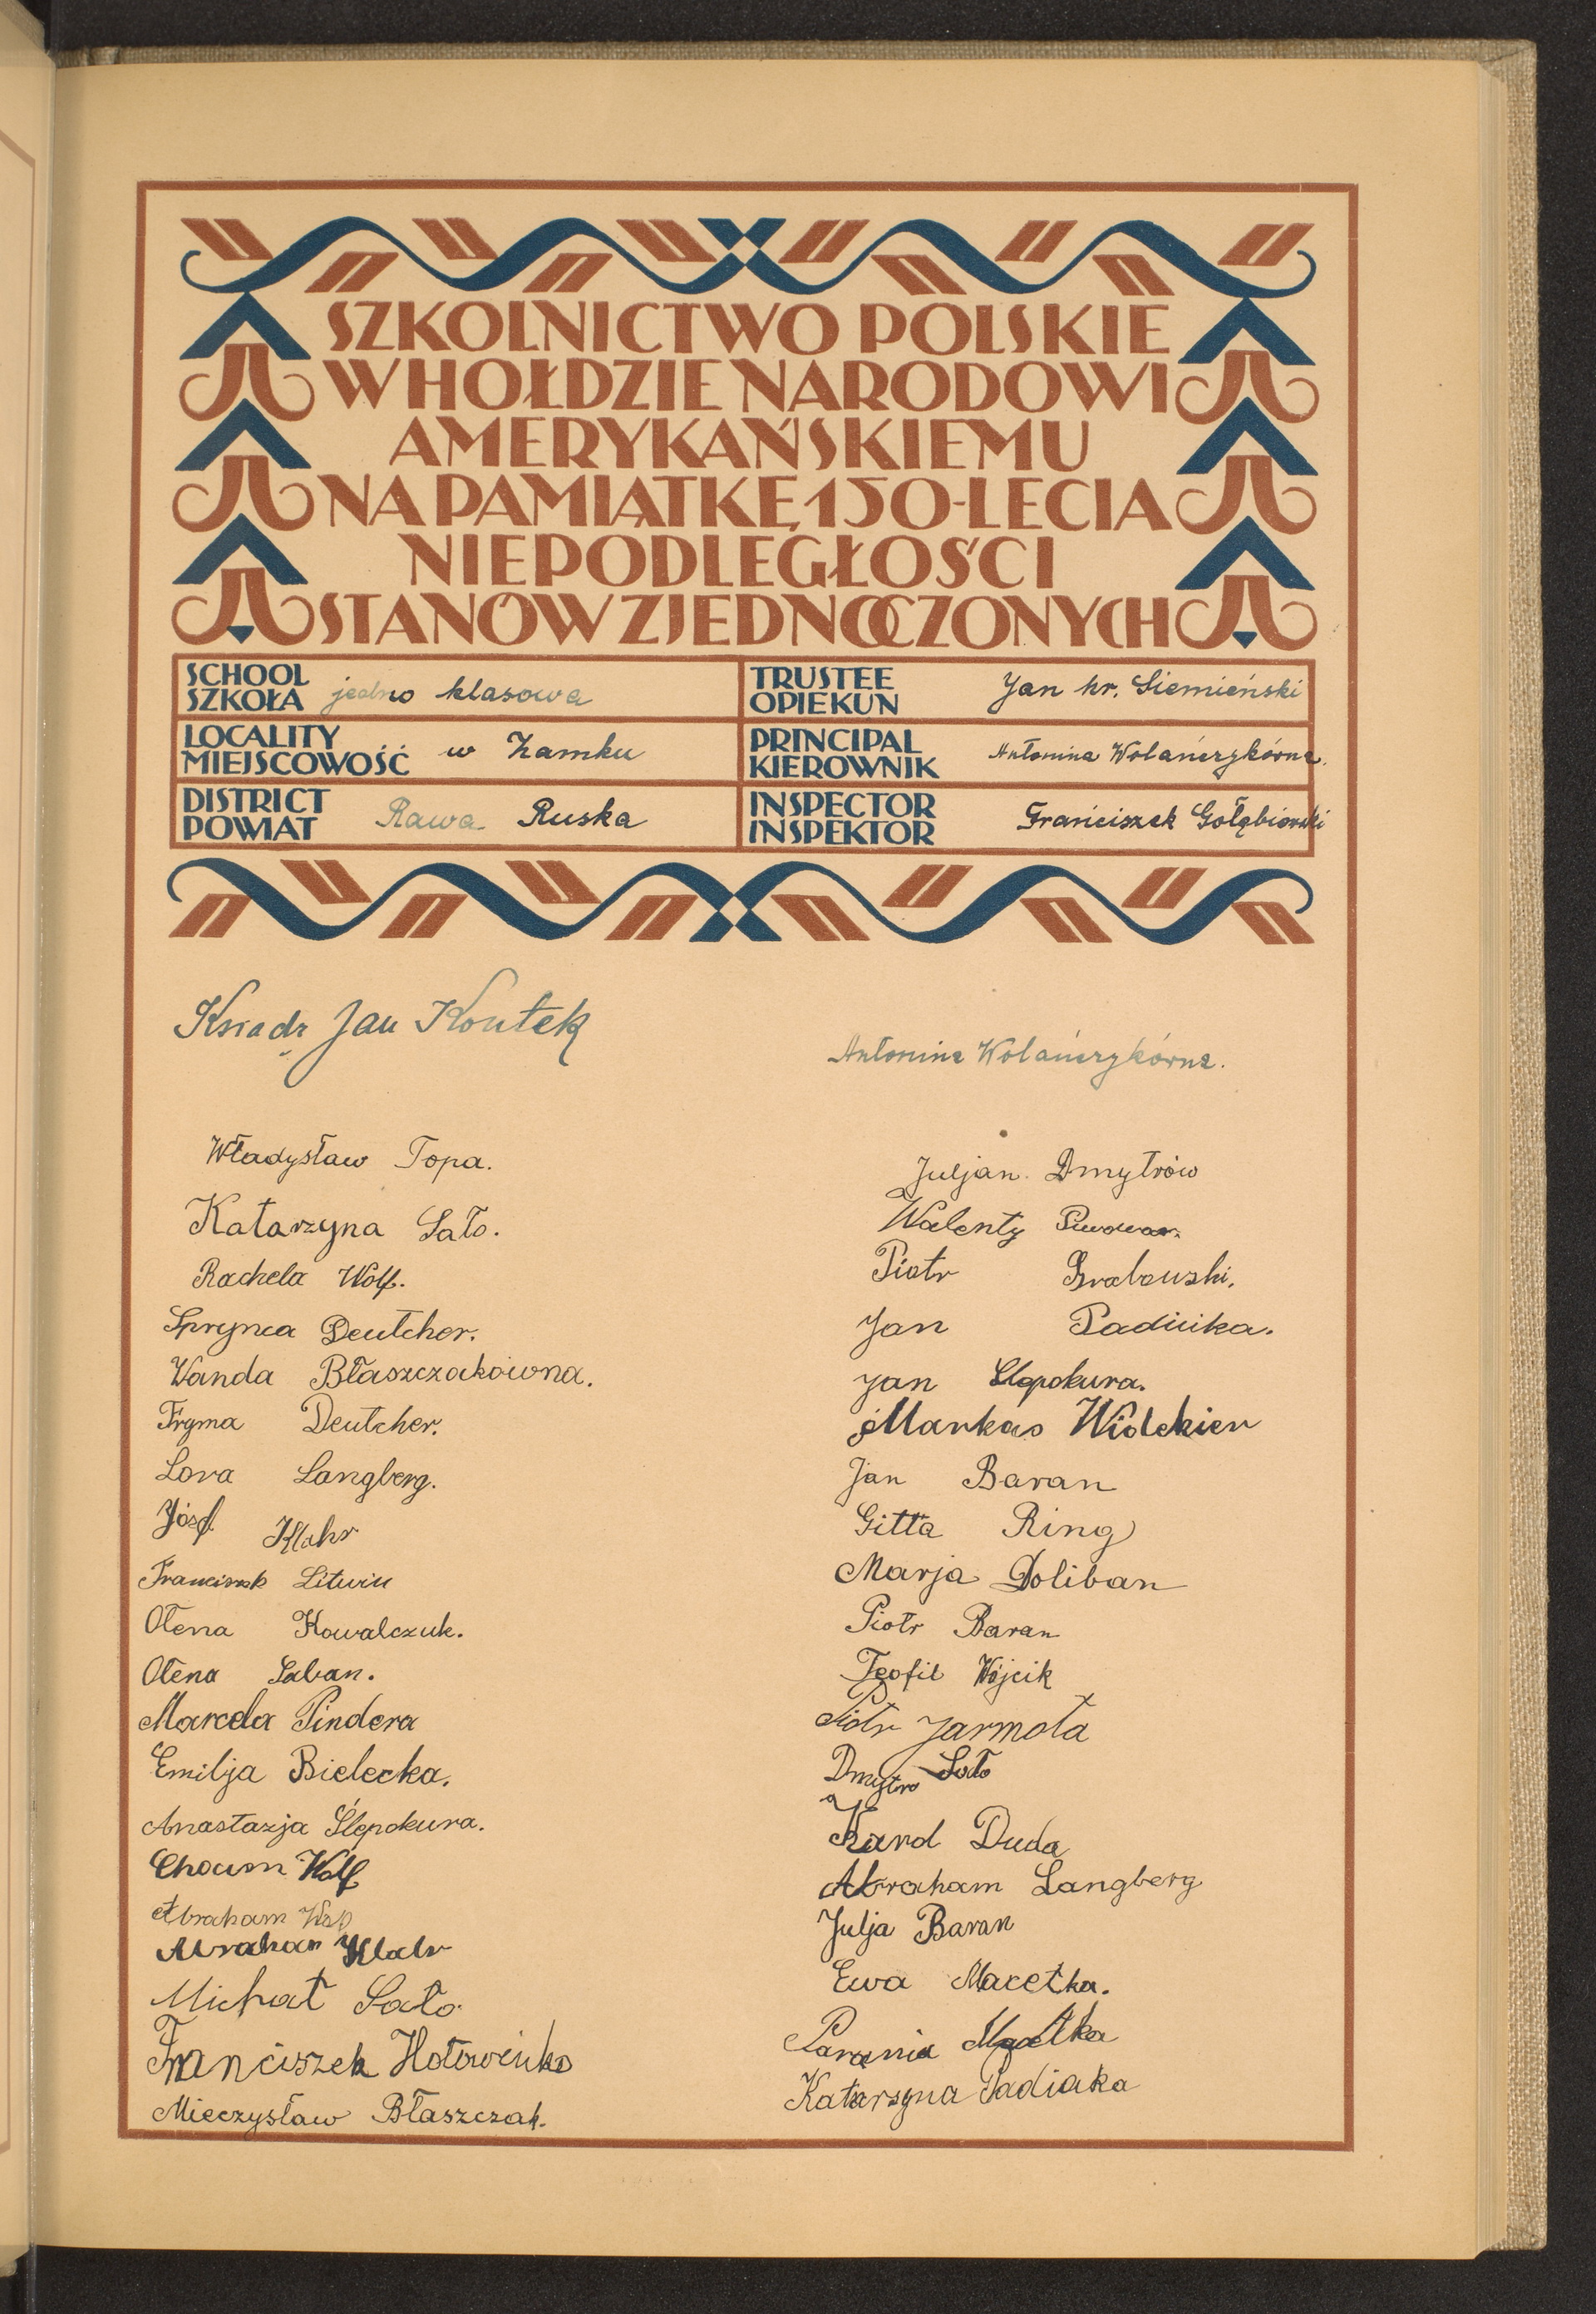 SZKOLNICTWO POLSKIE
W HOŁDZIE NARODOWI
AMERYKAŃSKIEMU
NA PAMIĄTKĘ 150-LECIA
NIEPODLEGŁOŚCI
STANÓW ZJEDNOCZONYCH
SCHOOL
SZKOŁA jedno klasowa
TRUSTEE
OPIEKUN Jan hr. Siemieński
LOCALITY
MIEJSCOWOŚĆ w Zamku
PRINCIPAL
KIEROWNIK Antonina Wolańczykówna.
DISTRICT
POWIAT Rawa Ruska
INSPECTOR
INSPEKTOR Franciszek Gołąbiowski
Ksiądz Jan Kontek
Antonina Wolańczykówna.
Władysław Topa.
Katarzyna Sało.
Rachela Wolf.
Sprynca Deutcher.
Wanda Błaszczakówna.
Fryma Deutcher.
Lora Langberg.
Józef Klahr
Franciszek Litwin
Ołena Kowalczuk.
Ołena Saban.
Marcela Pindera
Emilja Bielecka.
Anastazja Ślepokura.
Chaim Wolf
Abraham
Abraham Klahr
Michał Sało
Franciszek Hołowińko
Mieczysław Błaszczak.
Juljan Dmytrów
Walenty Piwowar.
Piotr Grabowski.
Jan Padiuka.
Jan Ślepokura.
Markus Wiolekier
Jan Baran
Gitta Ring
Marja Doliban
Piotr Baran
Teofil Wójcik
Piotr Jarmoła
Dmytro Sało
Karol Duda
Abraham Langberg
Julja Baran
Ewa Macełka.
Parania Macełka
Katarzyna Padiaka